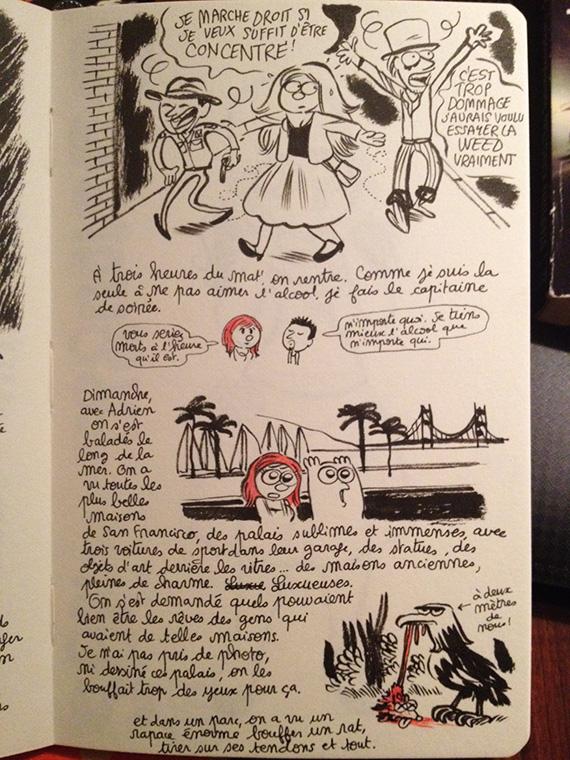 JE MARCHE DROIT SI
JE VEUX SUFFIT D'ÊTRE
CONCENTRÉ!
C'EST
TROP
DOMMAGE
J'AURAIS VOULU
ESSAYER LA
WEED
VRAIMENT
À trois heures du mat' on rentre. Comme je suis la
seule à ne pas aimer l'alcool, je fais le capitaine
de soirée.
vous seriez
morts à l'heure
qu'il est.
n'importe quoi. Je tiens
mieux l'alcool que
n'importe qui.
Dimanche,
avec Adrien
on s'est
baladés le
long de la
mer. On a
vu toutes les
plus belles
maisons
de San Francisco, des palais sublimes et immenses, avec
trois voitures de sport dans leur garage, des statues, des
objets d'art derrière les vitres... des maisons anciennes,
pleines de charme. Luxue Luxueuses.
On s'est demandé quels pouvaient
bien être les rêves des gens qui
avaient de telles maisons.
Je n'ai pas pris de photo,
ni dessiné ces palais, on les
bouffait trop des yeux pour ça.
à deux
mètres
de nous!
et dans un parc, on a vu un
rapace énorme bouffer un rat,
tirer sur ses tendons et tout.